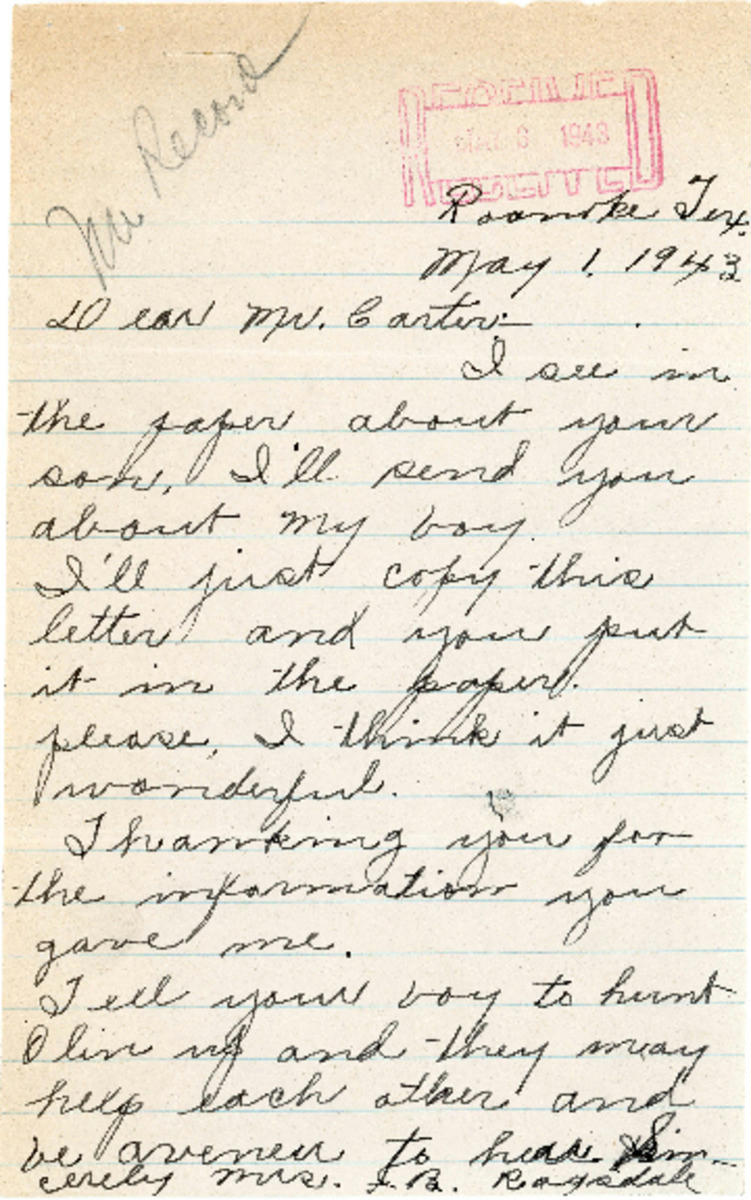 Mr Record
RECEIVED
1943
Roanoke Tex.
May 1. 1943
Dear Mr. Carter:-
I see in
the paper about your
son. I'll send you
about my boy.
I'll just copy this
letter and you put
it in the paper.
please, I think it just
wonderful.
Thanking you for
the information you
gave me.
Tell your boy to hunt
Olin up and they may
help each other and
be to hear Sin-
cerely Mrs. F. B. Ragsdale